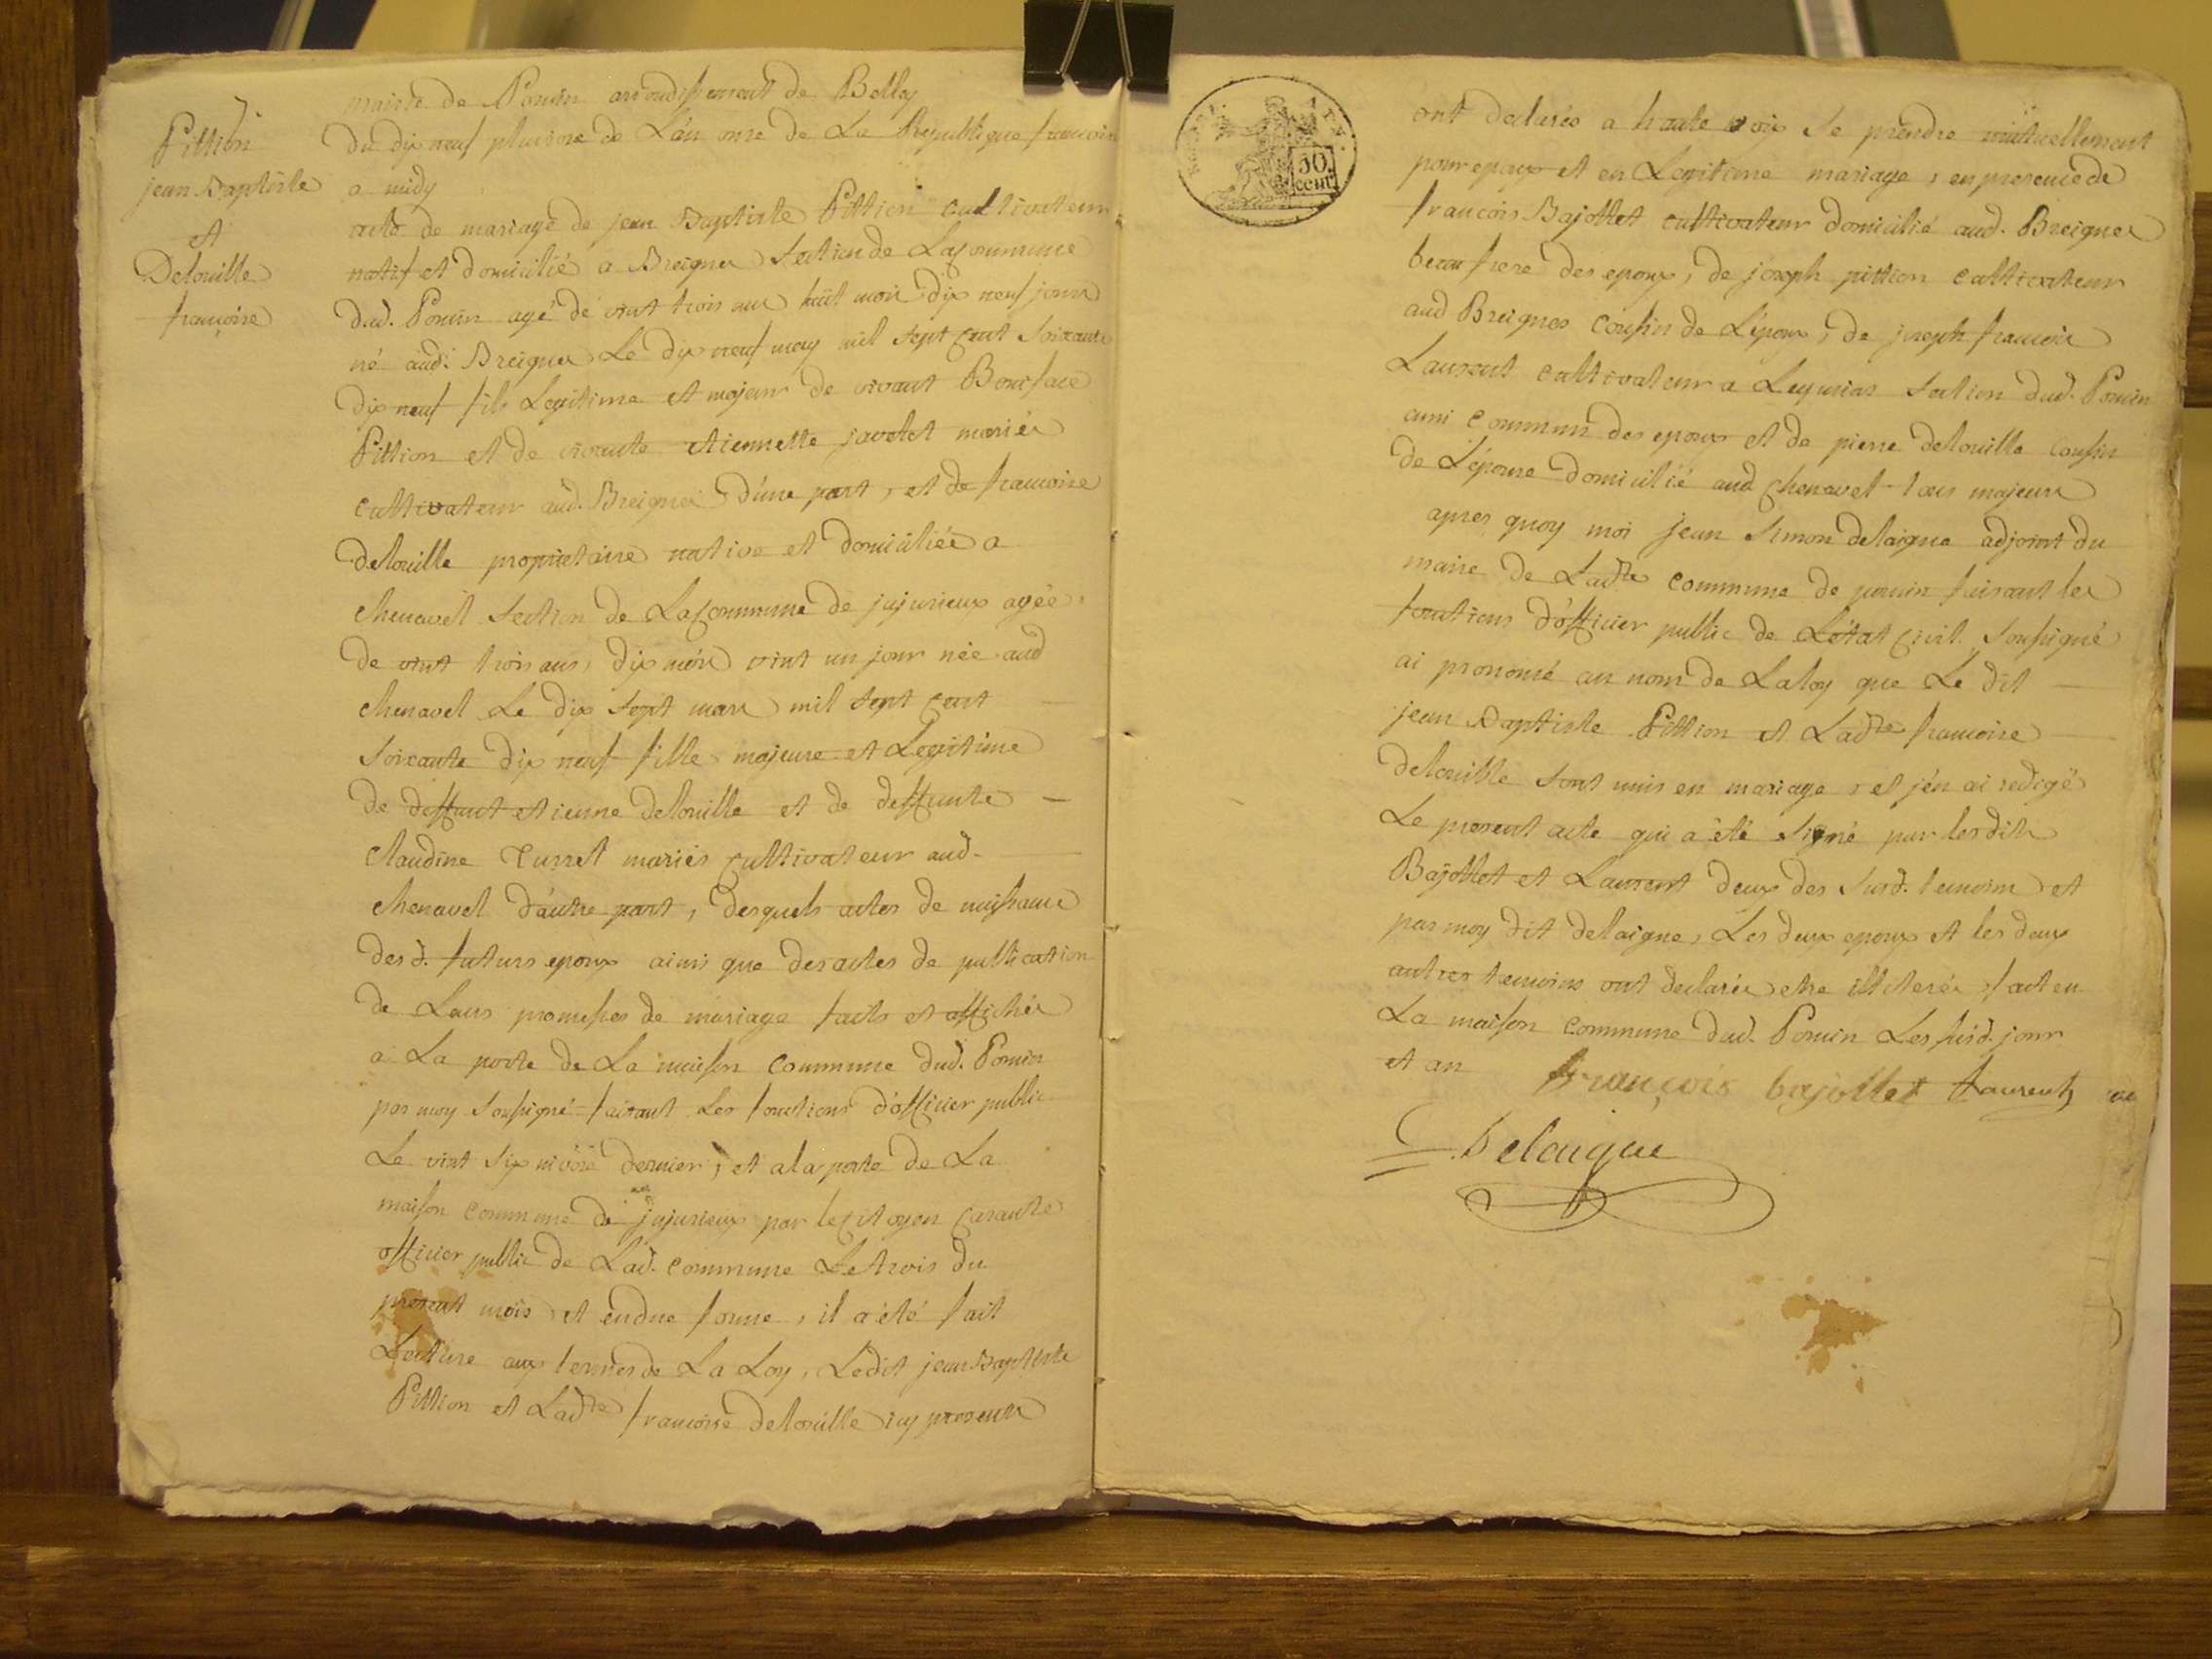 Pittion
jean Baptiste
et
Delouille
francoise
mairie de Poncin arrondissement de Belley
du dix neuf pluviose de L'an onze de La Republique francoise
a midy
acte de mariage de jean Baptiste Pittion cultivateur
natif et domicilié a Breignes Section de La Commune
dud. Poncin agé de vint trois ans huit mois dix neuf jours
né aud. Breignes Le dix neuf may mil sept cent Soixante
dix neuf fils Legitime et majeur de vivant Boniface
Pittion et de vivante etiennette javelot mariés
cultivateur aud. Breignes d'une part, et de francoise
delouille proprietaire native et domiciliée a
chenavel Section de La Commune de jujurieux agée
de vint trois ans, dix mois vint un jour née aud
chenavel Le dix sept mars mil sept cent
soixante dix neuf fille majeure et Legitime
de deffunt etienne delouille et de deffunte
Claudine Curset mariés cultivateur aud.
chenavel d'autre part, desquels actes de naissance
des d. futurs epoux ainsi que des actes de publication
de Leurs promesses de mariage faits et affichés
a La porte de La maison Commune dud. Poncin
par moy soussigné faisant Les fonctions d'officier public
Le vint six nivose dernier, et a la porte de La
maison commune de jujurieux par le citoyen
officier public de Lad. commune Le trois du
present mois et en due forme, il a été fait
Lecture aux termes de La Loy, Ledit jean Baptiste
Pittion et Ladte francoise delouille icy presents
50
cent
ont declarés a haute voix se prendre mutuellement
pour epoux et en Legitime mariage, en presence de
francois Bajollet cultivateur domicilié aud. Breignes
beau frere des epoux, de joseph pittion cultivateur
aud Breignes cousin de L'epoux, de joseph francois
Laurent cultivateur a Leymias Section dud. Poncin
ami commun des epoux et de pierre delouille cousin
de L'epouse domicilié aud chenavel tous majeurs
apres quoy moi jean Simon delaigue adjoint du
maire de Ladte commune de poncin faisant les
fonctions d'officier public de L'état civil soussigné
ai prononcé au nom de La loy que Le dit
jean Baptiste Pittion et Ladte francoise
delouille sont unis en mariage, et j'en ai redigé
Le present acte qui a été signé par lesdits
Bajollet et Laurent deux des susd. temoins et
par moy dit delaigue, Les deux epoux et les deux
autres temoins ont declarés etre illiterés fait en
La maison commune dud. Poncin Les susd. jour
et an
françois bajollet Laurent
Delaigue